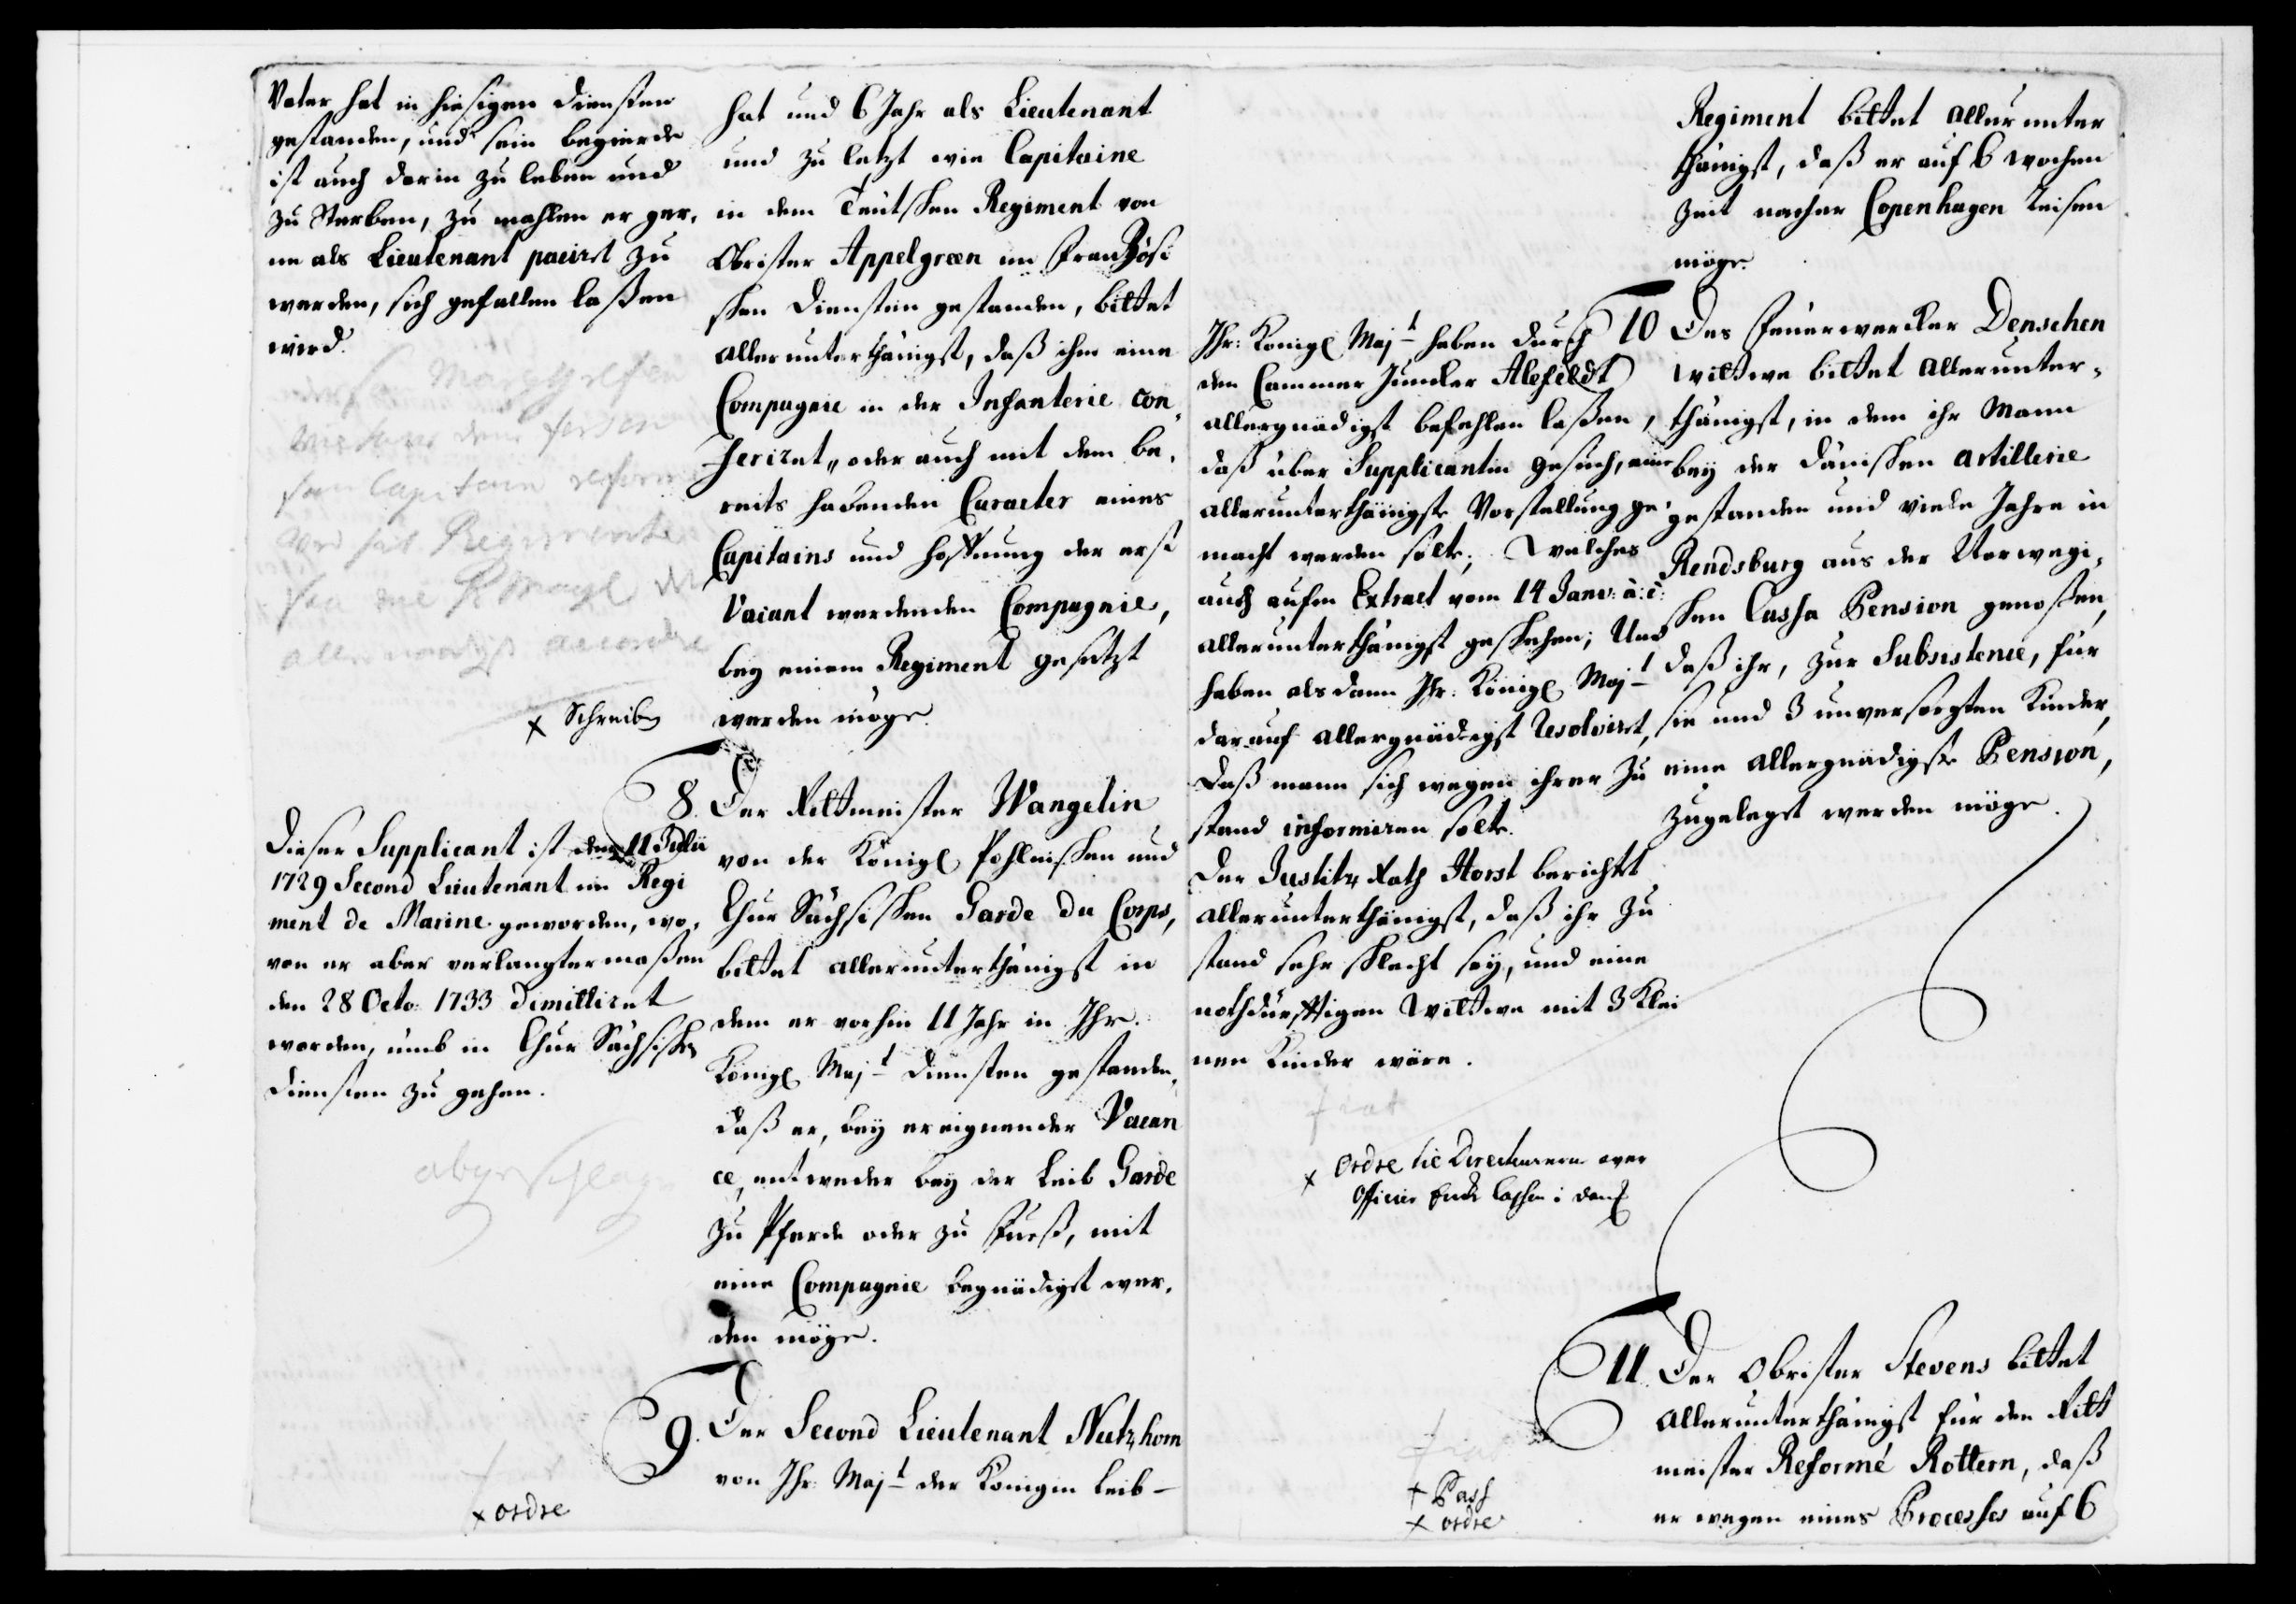 Vater hat in hiesigen diensten
gestanden, und sein begierde
ist auch darin zu leben und
zu Sterben, zu mahlen er ger-
ne als Lieutenant pacirt zu
werden, sich gefallen laßen
wird.
som Capitain reform
Regimente
allernaadigst accordere
x Schreiben
Dieser Supplicant ist den 11 Julii
1729 Second Lieutenant im Regi
ment de Marine geworden, wo-
von er aber verlangter maßen
den 28 Octo: 1733 dimittiret
worden, umb in Chur Sächsische
diensten zu gehen.
abgeschlagen
x ordre
hat und 6 Jahr als Lieutenant
und zu letzt wie Capitaine
in dem Teutschen Regiment von
Obrister Appelgreen in Französi
schen diensten gestanden, bittet
allerunterthänigst, daß ihm eine
Compagnie in der Infanterie con-
feriret, oder auch mit dem be-
reits habenden Caracter eines
Capitains und hoffnung der erst
Vacant werdenden Compagnie,
bey einem Regiment gesetzt
werden möge.
8. Der Rittmeister Wangelin
von der Königl Pohlnischen und
Chur Sächsischen Garde du Corps,
bittet allerunterthänigst in
dem er vorhin 11 Jahr in Ihr.
Königl Majt diensten gestanden,
daß er, bey ereignender Vacan
ce, entweder bey der Leib Garde
zu Pferde oder zu Fueß, mit
eine Compagnie begnädigst wer-
den möge.
9. Der Second Lieutenant Nutzhorn
von Ihr Majt der Königin Leib-
Regiment bittet allerunter
thänigst, daß er auf 6 wochen
Zeit nacher Copenhagen Reisen
möge.
Ihr: Königl Majt haben durch
den Cammer Juncker Alefeldt
allergnädigst befehlen laßen,
daß über Supplicantin gesuch, eine
allerunterthänigste Vorstellung ge-
macht werden solte; Welches
auch aufm Extract vom 14 Janv: a: c:
allerunterthänigst geschehen; Und
haben als dann Ihr. Königl Majt
darauf allergnädigst Resolvirt,
daß mann sich wegen ihrer Zu
stand informiren solte.
Der Justitz Rath Horst berichtet
allerunterthänigst, daß ihr Zu
stand sehr schlecht sey, und eine
nothdürfftigen Wittwe mit 3 Klei
nen Kinder wäre.
fiat
x Ordre til Directeurerne over
Officier Enke Cassen i Danm
10 Des Feuerwercker Denschen
Wittwe bittet allerunter-
thänigst, in dem ihr Mann
bey der dänischen artillerie
gestanden und viele Jahre in
Rendsburg aus der Norwegi-
schen Cassa Pension genoßen,
daß ihr, zur Subsistence, für
sie und 3 unversorgten Kinder,
eine allergnädigste Pension,
zugelegt werden möge.
11. Der Obrister Stevens bittet
allerunterthänigst für den Ritt
meister Reformé Rottern, daß
er wegen eines Processes auf 6
fiat
x Pass
x ordre